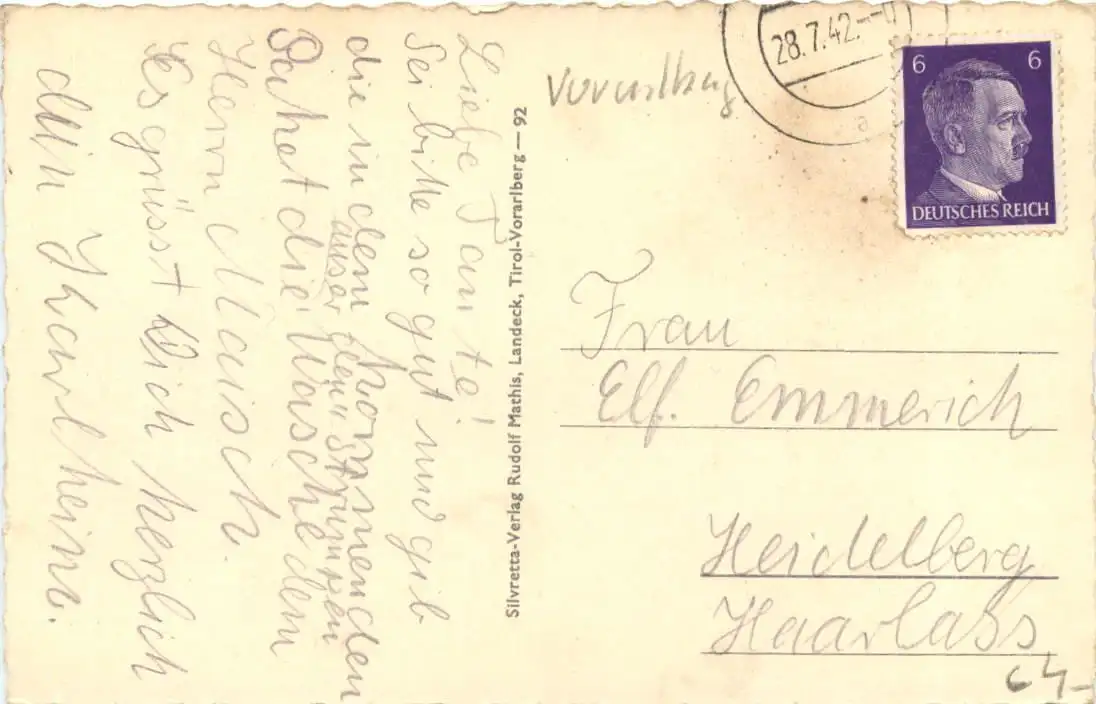 Liebe Tante!
Sei bitte so gut und gib
die in dem kommenden
Packet die Wäsche dem
auser den Strümpfen
Herrn Maisch.
Es grüsst Dich herzlich
dein Karlheinz.
Silvretta-Verlag Rudolf Mathis, Landeck, Tirol-Vorarlberg — 92
Vorarlberg
28.7.42.
a
6 6
DEUTSCHES REICH
Frau
Elf. Emmerich
Heidelberg
Haarlass